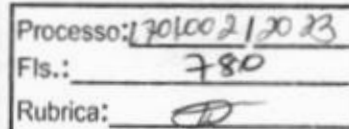 Processo: 1701002/2023
Fls.: 780
Rubrica: